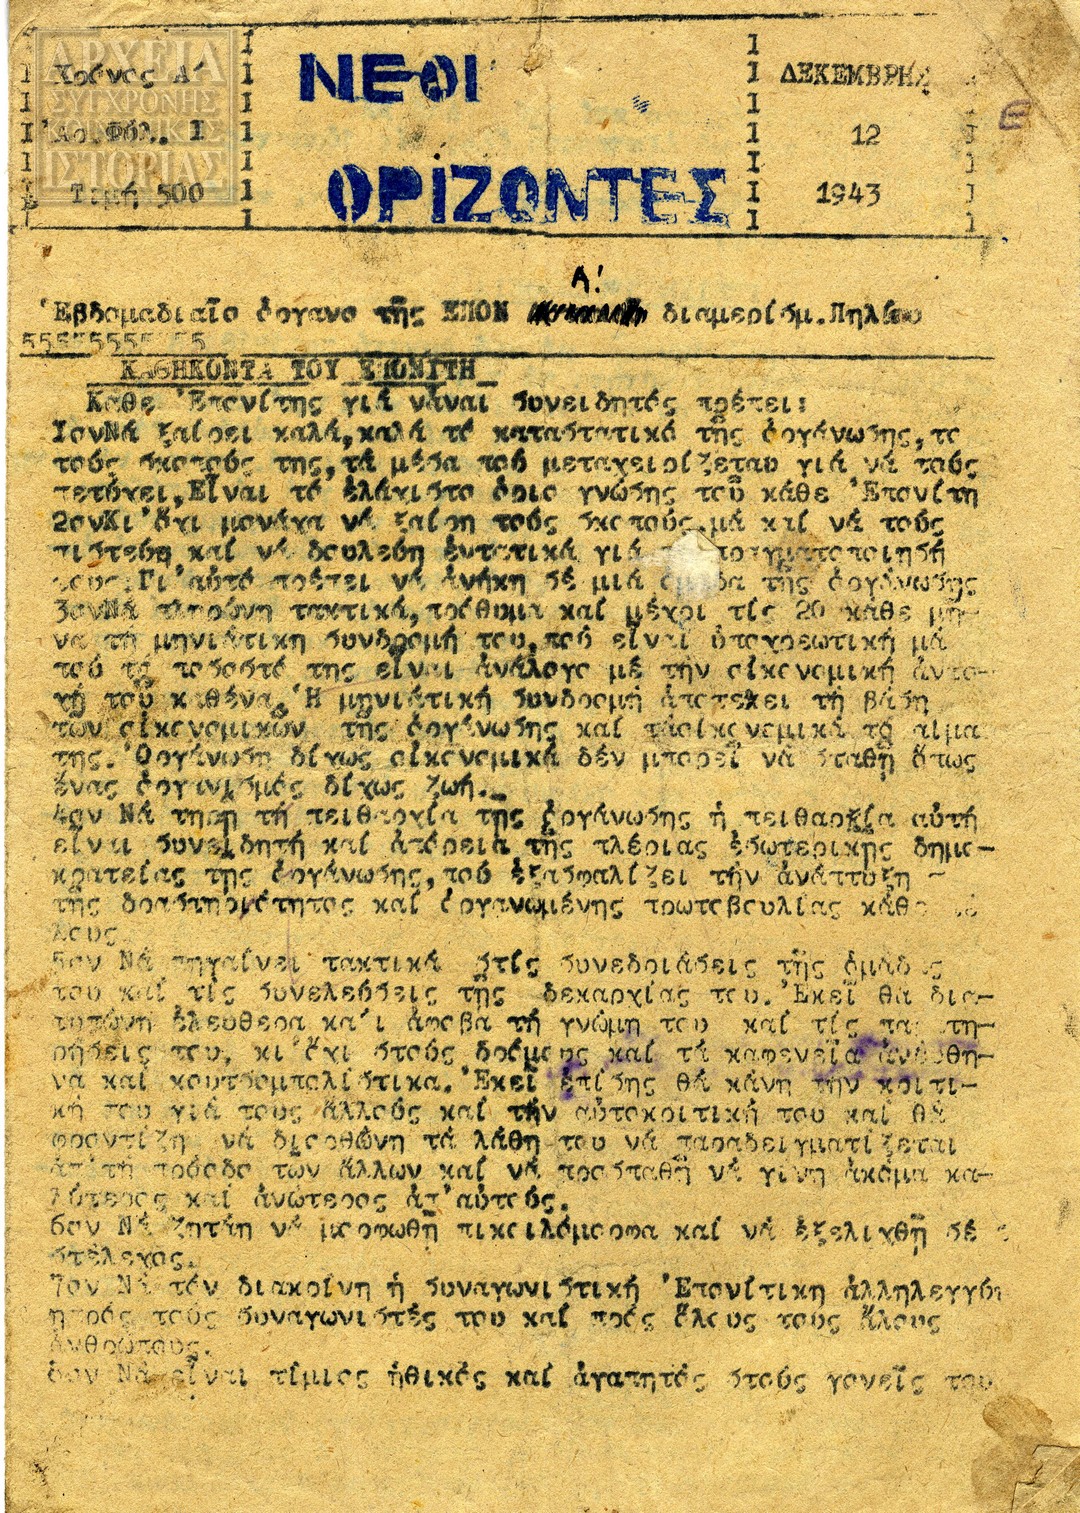 ΑΡΧΕΙΑ
ΣΥΓΧΡΟΝΗΣ
ΚΟΙΝΩΝΙΚΗΣ
ΙΣΤΟΡΙΑΣ
Χρόνος Α'
'Αρ.Φύλ. Ι
Τιμή 500
ΝΕΟΙ
ΟΡΙΖΟΝΤΕΣ
ΔΕΚΕΜΒΡΗΣ
12
1943
Α!
'Εβδομαδιαῖο ὄργανο τῆς ΕΠΟΝ διαμερίσμ.Πηλίου
ΚΑΘΗΚΟΝΤΑ ΤΟΥ ΕΠΟΝΙΤΗ
Κάθε 'Επονίτης γιά νἆναι συνειδητός πρέπει:
ΙονΝά ξαίρει καλά,καλά τό καταστατικό τῆς ὀργάνωσης,το
τούς σκοπούς της,τά μέσα πού μεταχειρίζεται γιά νά τούς
πετύχει,Εἶναι τό ἐλάχιστο ὅριο γνώσης τοῦ κάθε 'Επονίτη
2ονΚι'ὄχι μονάχα νά ξαίρη τούς σκοπούς,μά καί νά τούς
πιστεύη καί νά δουλεύη ἐντατικά γιά πραγματοποιησή
τους.Γι'αὐτό πρέπει νά ἀνήκη σέ μιά ὁμάδα τῆς ὀργάνωσης
3ονΝά πληρώνη τακτικά,πρόθυμα καί μέχρι τίς 20 κάθε μή-
να τή μηνιάτικη συνδρομή του,πού εἶναι ὑποχρεωτική μά
πού τό ποσοστό της εἶναι ἀνάλογο μέ τήν οἰκονομική ἀντο-
χή τοῦ καθένα.'Η μηνιάτική συνδρομή ἀποτελει τή βάση
τῶν οἰκονομικῶν τῆς ὀργάνωσης καί τάοἰκονομικά τό αἷμα
της.'Οργάνωση δίχως οἰκονομικά δέν μπορεῖ νά σταθῆ ὅπως
ἕνας ὀργανισμός δίχως ζωή._
4ον Νά τηρῆ τή πειθαρχία τῆς ὀργάνωσης ἡ πειθαρχία αὐτή
εἶναι συνειδητή καί ἀπόρεια τῆς πλέριας ἐσωτερικῆς δημο-
κρατείας της ὀργάνωσης,πού ἐξασφαλίζει τήν ἀνάπτυξη -
τῆς δραστηριότητος καί ὀργανωμένης πρωτοβουλίας κάθε μέ
λους
5ον Νά πηγαίνει τακτικά στίς συνεδριάσεις τῆς ὁμάδας
του καί τίς συνελεύσεις τῆς δεκαρχίας του.'Εκεῖ θά δια-
τυπώνη ἐλεύθερα κα'ι ἄφοβα τή γνώμη του καί τίς παρατη-
ρήσεις του, κι'ὄχι στούς δρόμους καί τά καφενεῖα ἀνεύθη-
να καί κουτσομπολίστικα.'Εκεῖ ἐπίσης θά κάνη τήν κριτι-
κή του γιά τους ἄλλούς καί τήν αὐτοκριτική του καί θά
φροντίζη νά διορθώνη τά λάθη του νά παραδειγματίζεται
ἀπ'τή πρόοδο των ἄλλων καί νά προσπαθῆ νά γίνη ἀκόμα κα-
λύτερος καί ἀνώτερος ἀπ'αὐτούς.
6ον Νά ζητάη νά μορφωθῆ πικοιλόμορφα καί νά ἐξελιχθῆ σέ
στέλεχος.
7ον Νά τόν διακρίνη ἡ συναγωνιστική 'Επονίτικη ἀλληλεγγύη
ηπρός τούς συναγωνιστές του καί πρός ὅλους τούς ἄλους
ἀνθρώπους.
8ον Νά εἶναι τίμιος ἠθικός καί ἀγαπητός στούς γονεῖς του